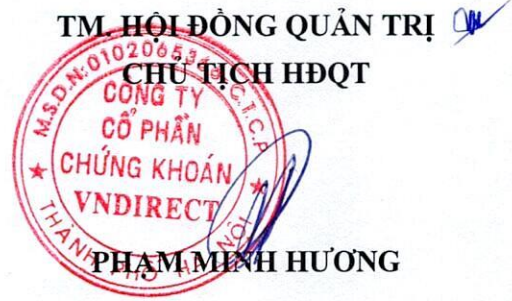 TM. HỘI ĐỒNG QUẢN TRỊ
CHỦ TỊCH HĐQT
M.S.D.N:0102065366-C.T.C.P
CÔNG TY
CỔ PHẦN
CHỨNG KHOÁN
VNDIRECT
THÀNH PHỐ HÀ NỘI
PHẠM MINH HƯƠNG